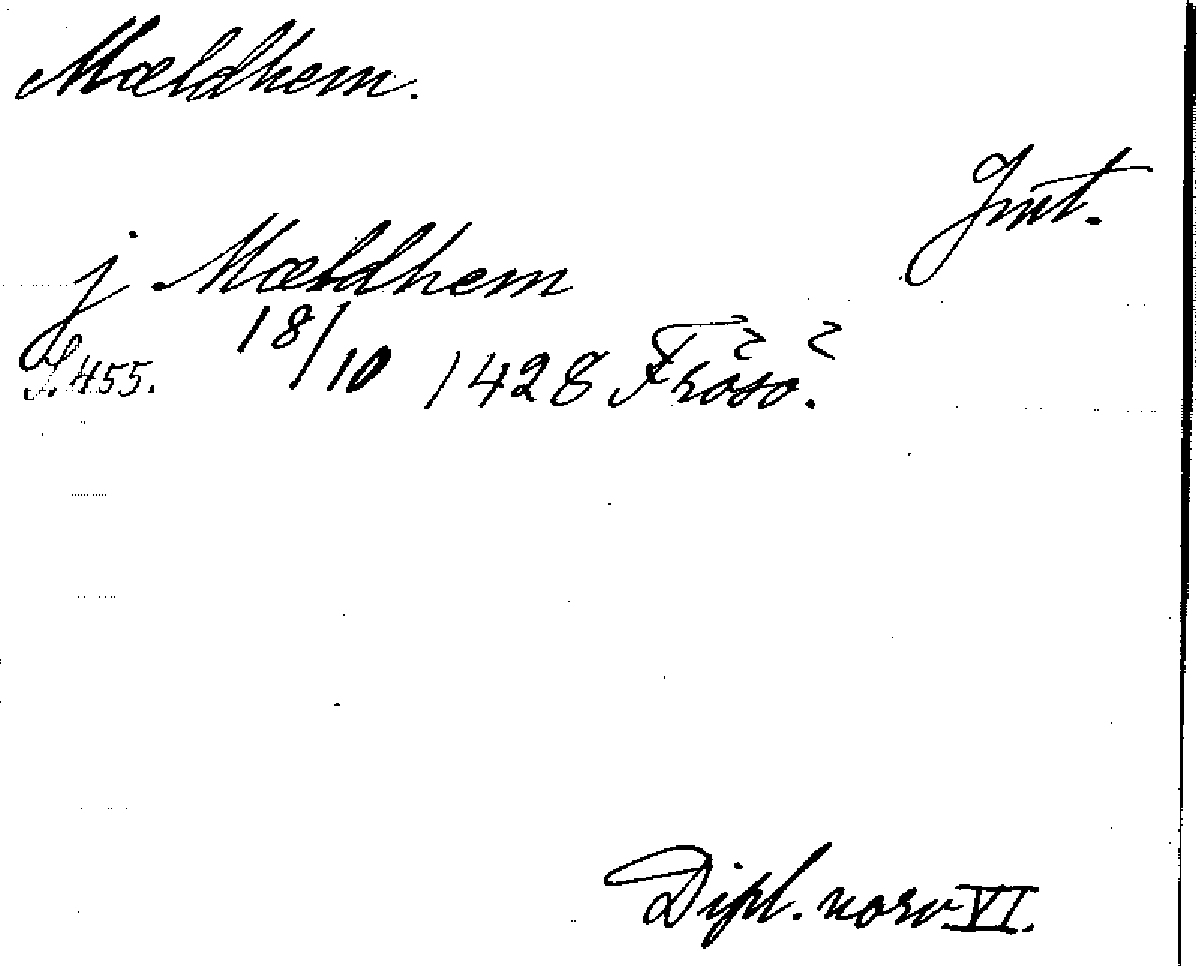 Mældhem.
Jmt.
j Mældhem
S. 455. 18/10 1428 Frösö.
Dipl. norv. VI.